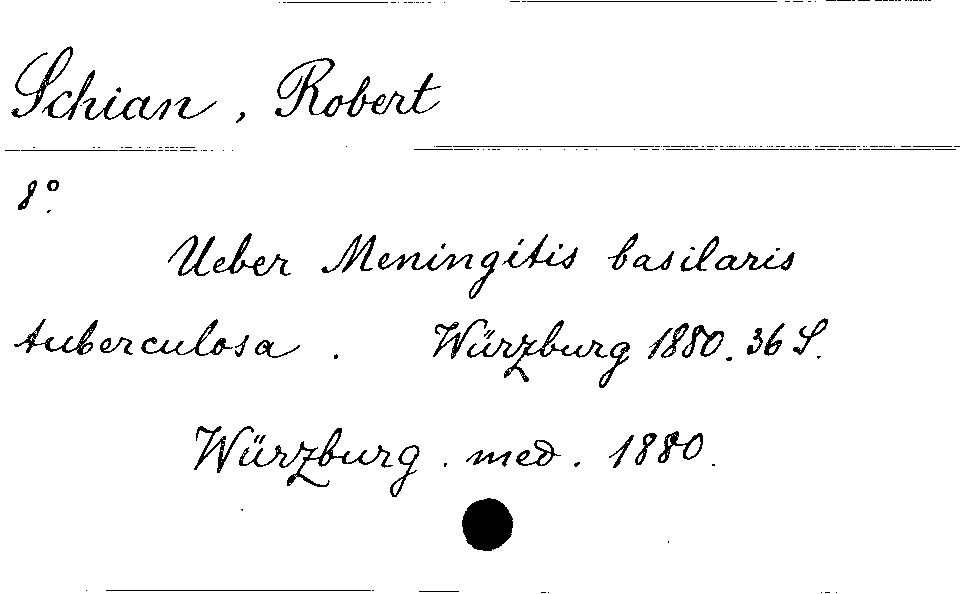 Schian, Robert
8°.
Ueber Meningitis basilaris
tuberculosa. Würzburg 1880. 36 S.
Würzburg. med. 1880.